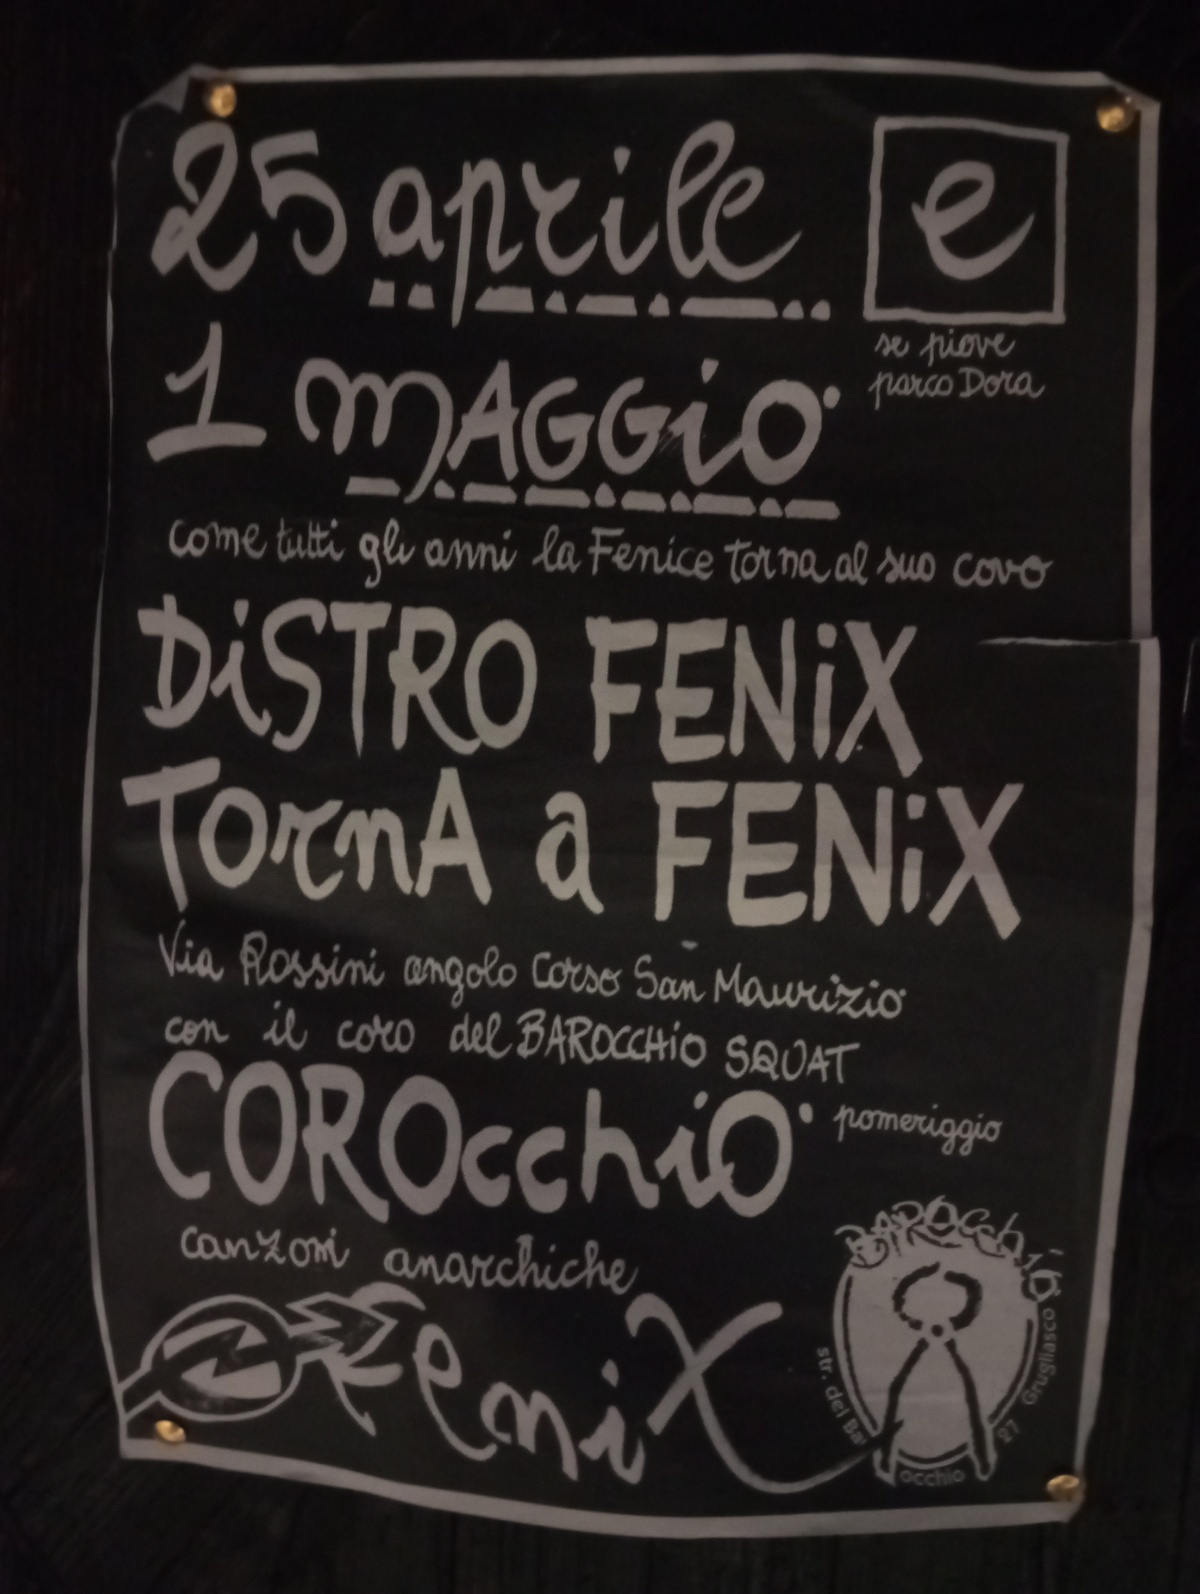 25 aprile
e
se piove
parco Dora
1 MAGGiO
come tutti gli anni la Fenice torna al suo covo
DiSTRO FENiX
TornA a FENiX
Via Rossini angolo Corso San Maurizio
con il coro del BAROCCHiO SQUAT
COROcchiO
pomeriggio
canzoni anarchiche
FeniX
BAROCChiO
str. del Barocchio 27 Grugliasco